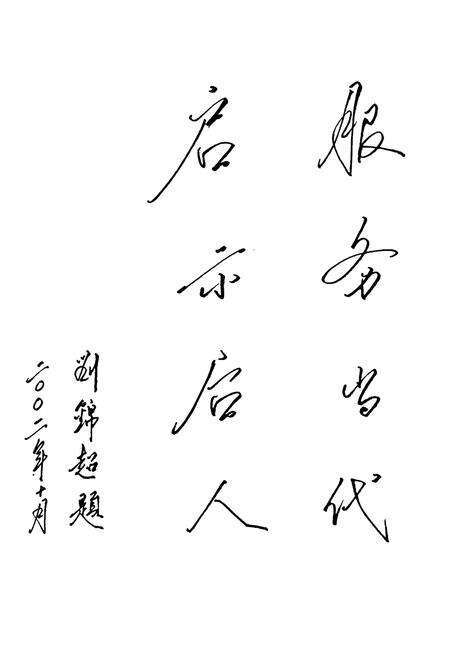 服务当代
启示后人
劉錦超題
二00二年十月